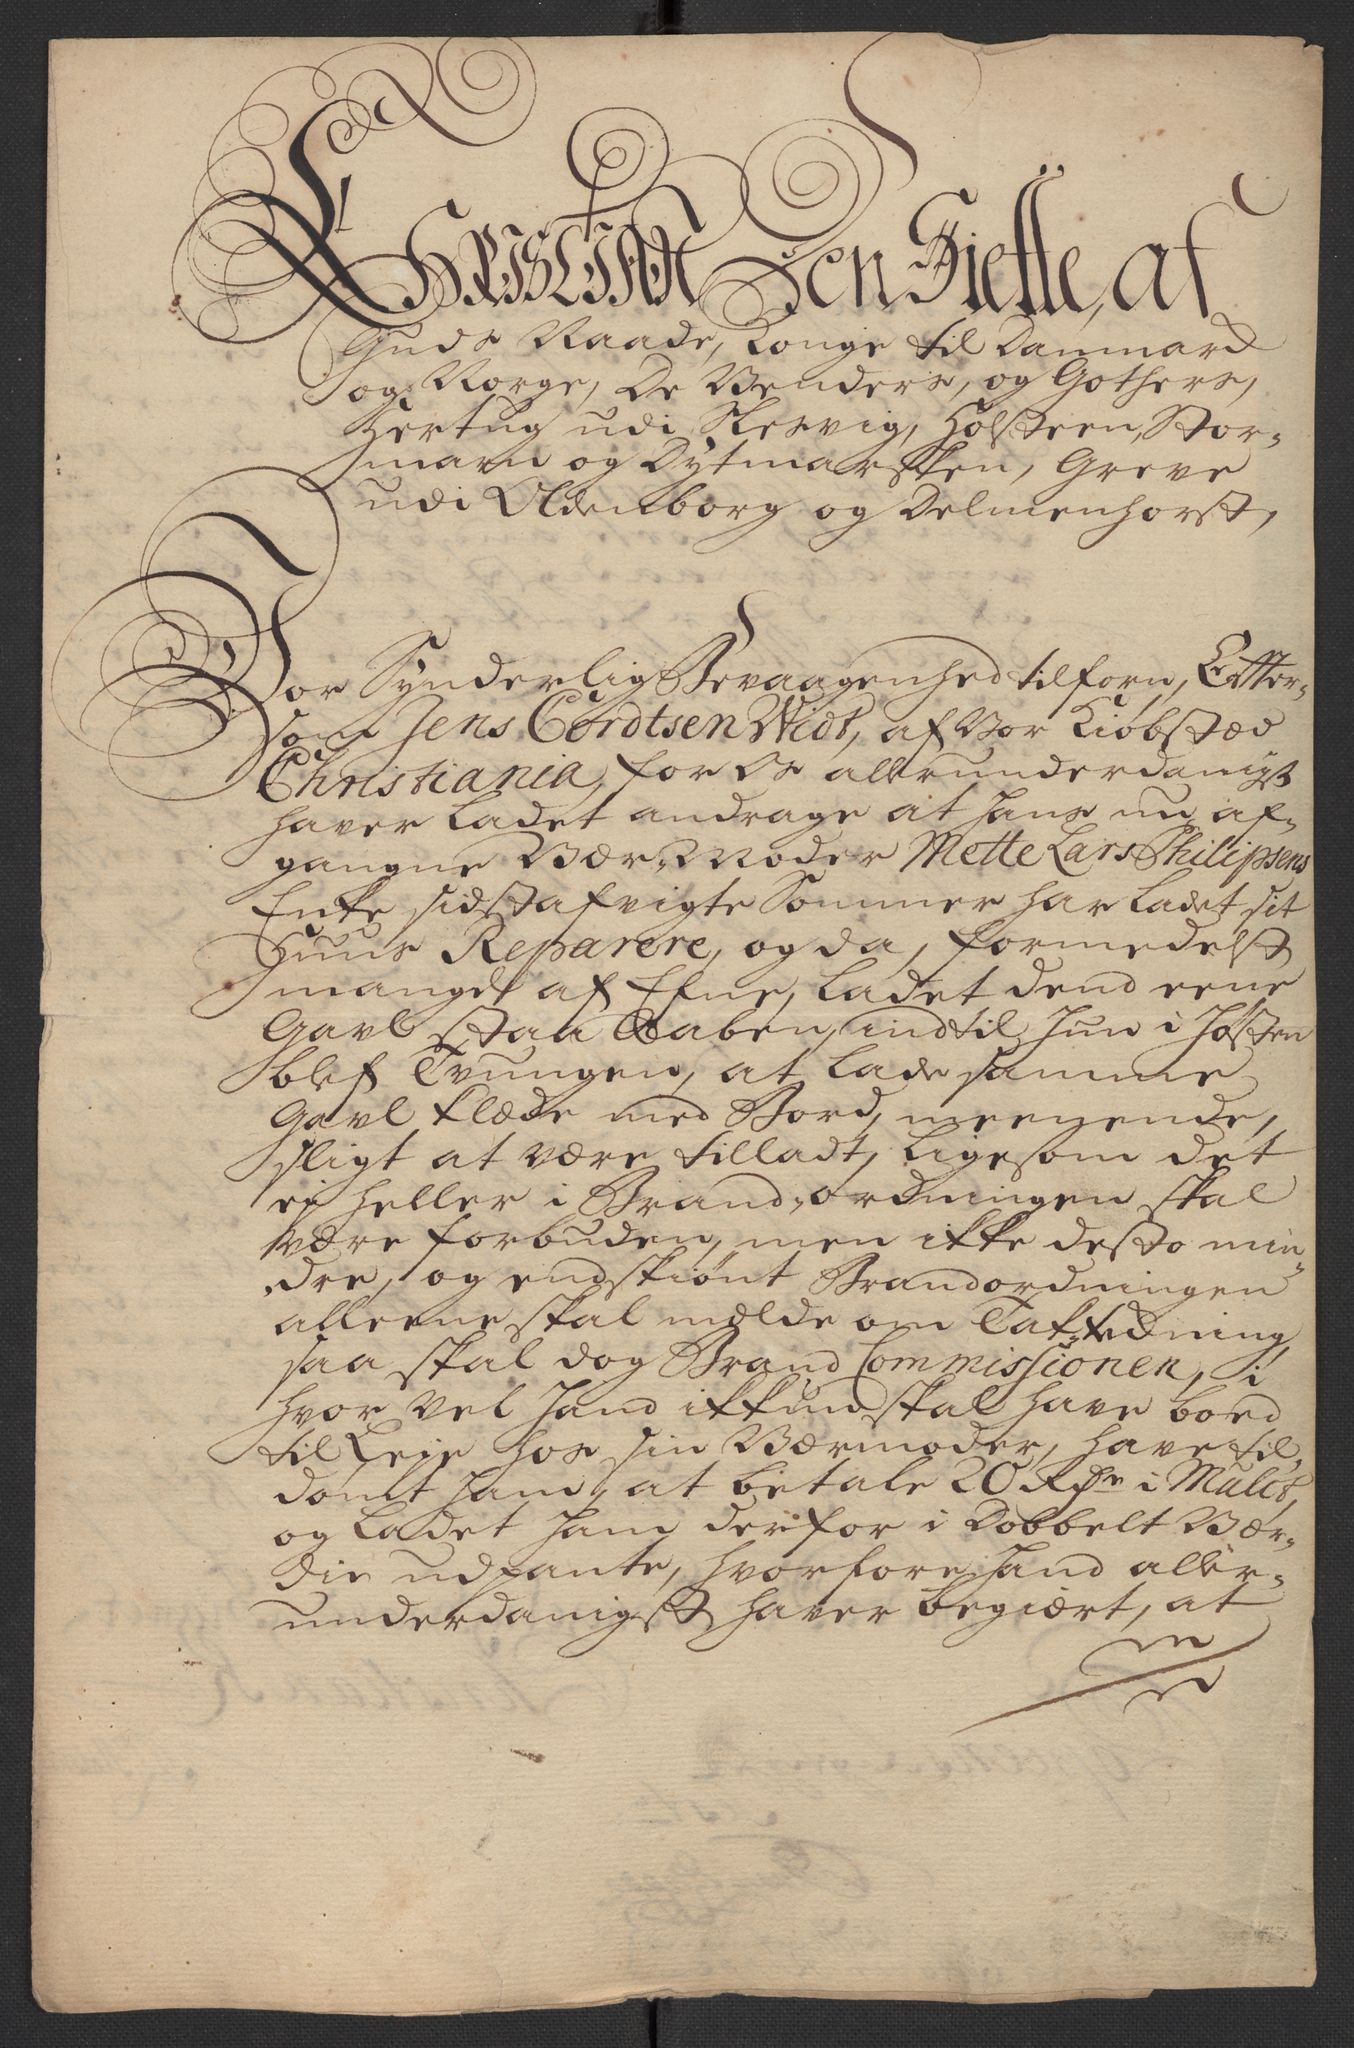 CHRISTIAN Den Siette, af
Guds Naade, Konge til Danmark
og Norge, De Venders, og Gothers,
Hertug udi Slesvig, Holsteen, Stor-
marn og Dytmarsken, Greve
udi Oldenborg og Delmenhorst,
Vor Synderlig Bevaagenhed tilforn, Efter-
som Jens Cordtsen Widt, af Vor Kiøbstæd
Christiania, for Os allerunderdanigst
haver ladet andrage at hans nu af-
gangne Vær-Moder Mette Lars Philipsens
Enke sidstafvigte Sommer har ladet sit
Huus Reparere, og da, formedelst
mangel af Efne, ladet dend eene
Gavl staa Aaben, indtil hun i Høsten
blef Tvungen, at lade samme
Gavl klæde med Bord, meenende,
sligt at være tilladt, ligesom det
ej heller i Brand-ordningen skal
være forbuden, men ikke desto min-
dre, og endskiønt Brandordningen
alleene skal melde om Taftedning,
saa skal dog Brand Commissionen, i
hvor vel hand ikkun skal have boed
til Leje hos sin Værmoder, have til
dømt ham, at betale 20 Rdr i Mulct,
og ladet ham derfor i Dobbelt Vær-
die udpante, hvorfore hand aller-
underdanigst haver begiært, at